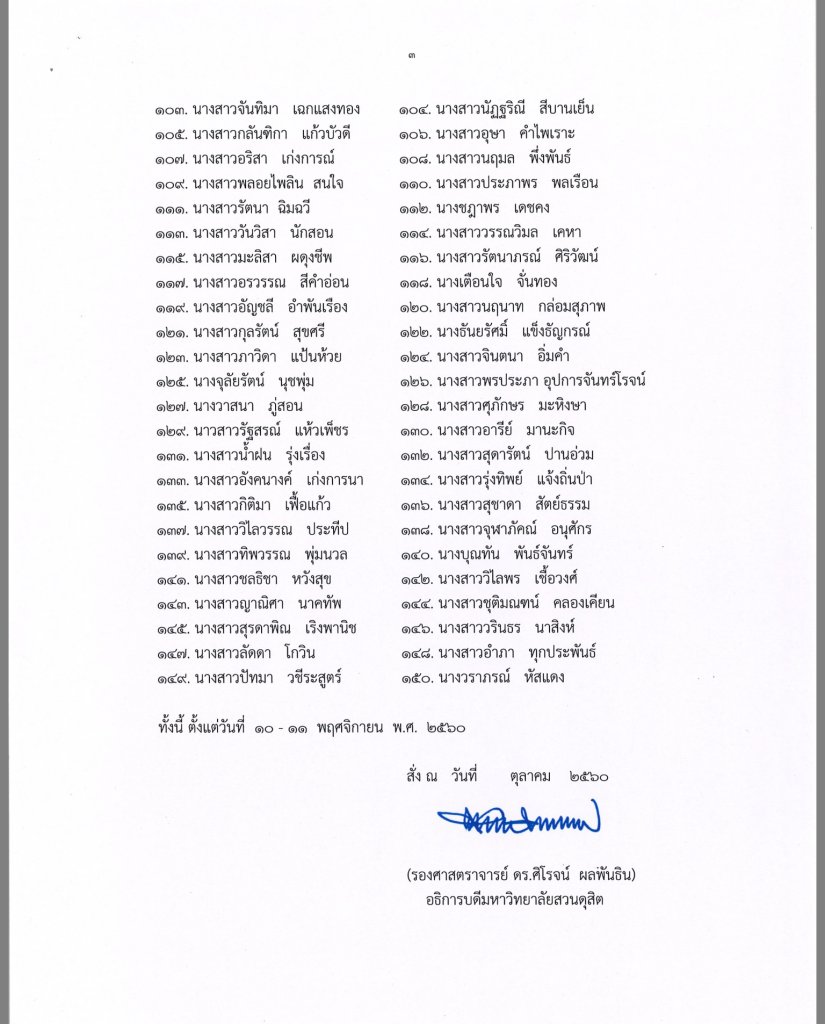 ๓
๑๐๓. นางสาวจันทิมา เฉกแสงทอง ๑๐๔. นางสาวนัฏฐริณี สีบานเย็น
๑๐๕. นางสาวกลันฑิกา แก้วบัวดี ๑๐๖. นางสาวอุษา คำไพเราะ
๑๐๗. นางสาวอริสา เก่งการณ์ ๑๐๘. นางสาวนฤมล พึ่งพันธ์
๑๐๙. นางสาวพลอยไพลิน สนใจ ๑๑๐. นางสาวประภาพร พลเรือน
๑๑๑. นางสาวรัตนา ฉิมฉวี ๑๑๒. นางชฎาพร เดชคง
๑๑๓. นางสาววันวิสา นักสอน ๑๑๔. นางสาววรรณวิมล เคหา
๑๑๕. นางสาวมะลิสา ผดุงชีพ ๑๑๖. นางสาวรัตนาภรณ์ ศิริวัฒน์
๑๑๗. นางสาวอรวรรณ สีคำอ่อน ๑๑๘. นางเตือนใจ จั่นทอง
๑๑๙. นางสาวอัญชลี อำพันเรือง ๑๒๐. นางสาวนฤนาท กล่อมสุภาพ
๑๒๑. นางสาวกุลรัตน์ สุขศรี ๑๒๒. นางธันยรัศมิ์ แข็งธัญกรณ์
๑๒๓. นางสาวภาวิดา แป้นห้วย ๑๒๔. นางสาวจินตนา อิ่มคำ
๑๒๕. นางจุลัยรัตน์ นุชพุ่ม ๑๒๖. นางสาวพรประภา อุปการจันทร์โรจน์
๑๒๗. นางวาสนา ภู่สอน ๑๒๘. นางสาวศุภักษร มะหิงษา
๑๒๙. นาวสาวรัฐสรณ์ แห้วเพ็ชร ๑๓๐. นางสาวอารีย์ มานะกิจ
๑๓๑. นางสาวน้ำฝน รุ่งเรื่อง ๑๓๒. นางสาวสุดารัตน์ ปานอ่วม
๑๓๓. นางสาวอังคนางค์ เก่งการนา ๑๓๔. นางสาวรุ่งทิพย์ แจ้งถิ่นป่า
๑๓๕. นางสาวกิติมา เฟื้อแก้ว ๑๓๖. นางสาวสุชาดา สัตย์ธรรม
๑๓๗. นางสาววิไลวรรณ ประทีป ๑๓๘. นางสาวจุฬาภัคณ์ อนุศักร
๑๓๙. นางสาวทิพวรรณ พุ่มนวล ๑๔๐. นางบุณทัน พันธ์จันทร์
๑๔๑. นางสาวชลธิชา หวังสุข ๑๔๒. นางสาววิไลพร เชื้อวงศ์
๑๔๓. นางสาวญาณิศา นาคทัพ ๑๔๔. นางสาวชุติมณฑน์ คลองเคียน
๑๔๕. นางสาวสุรดาพิณ เริงพานิช ๑๔๖. นางสาววรินธร นาสิงห์
๑๔๗. นางสาวลัดดา โกวิน ๑๔๘. นางสาวอำภา ทุกประพันธ์
๑๔๙. นางสาวปัทมา วชีระสูตร์ ๑๕๐. นางวราภรณ์ หัสแดง
ทั้งนี้ ตั้งแต่วันที่ ๑๐ - ๑๑ พฤศจิกายน พ.ศ. ๒๕๖๐
สั่ง ณ วันที่ ตุลาคม ๒๕๖๐
(รองศาสตราจารย์ ดร.ศิโรจน์ ผลพันธิน)
อธิการบดีมหาวิทยาลัยสวนดุสิต